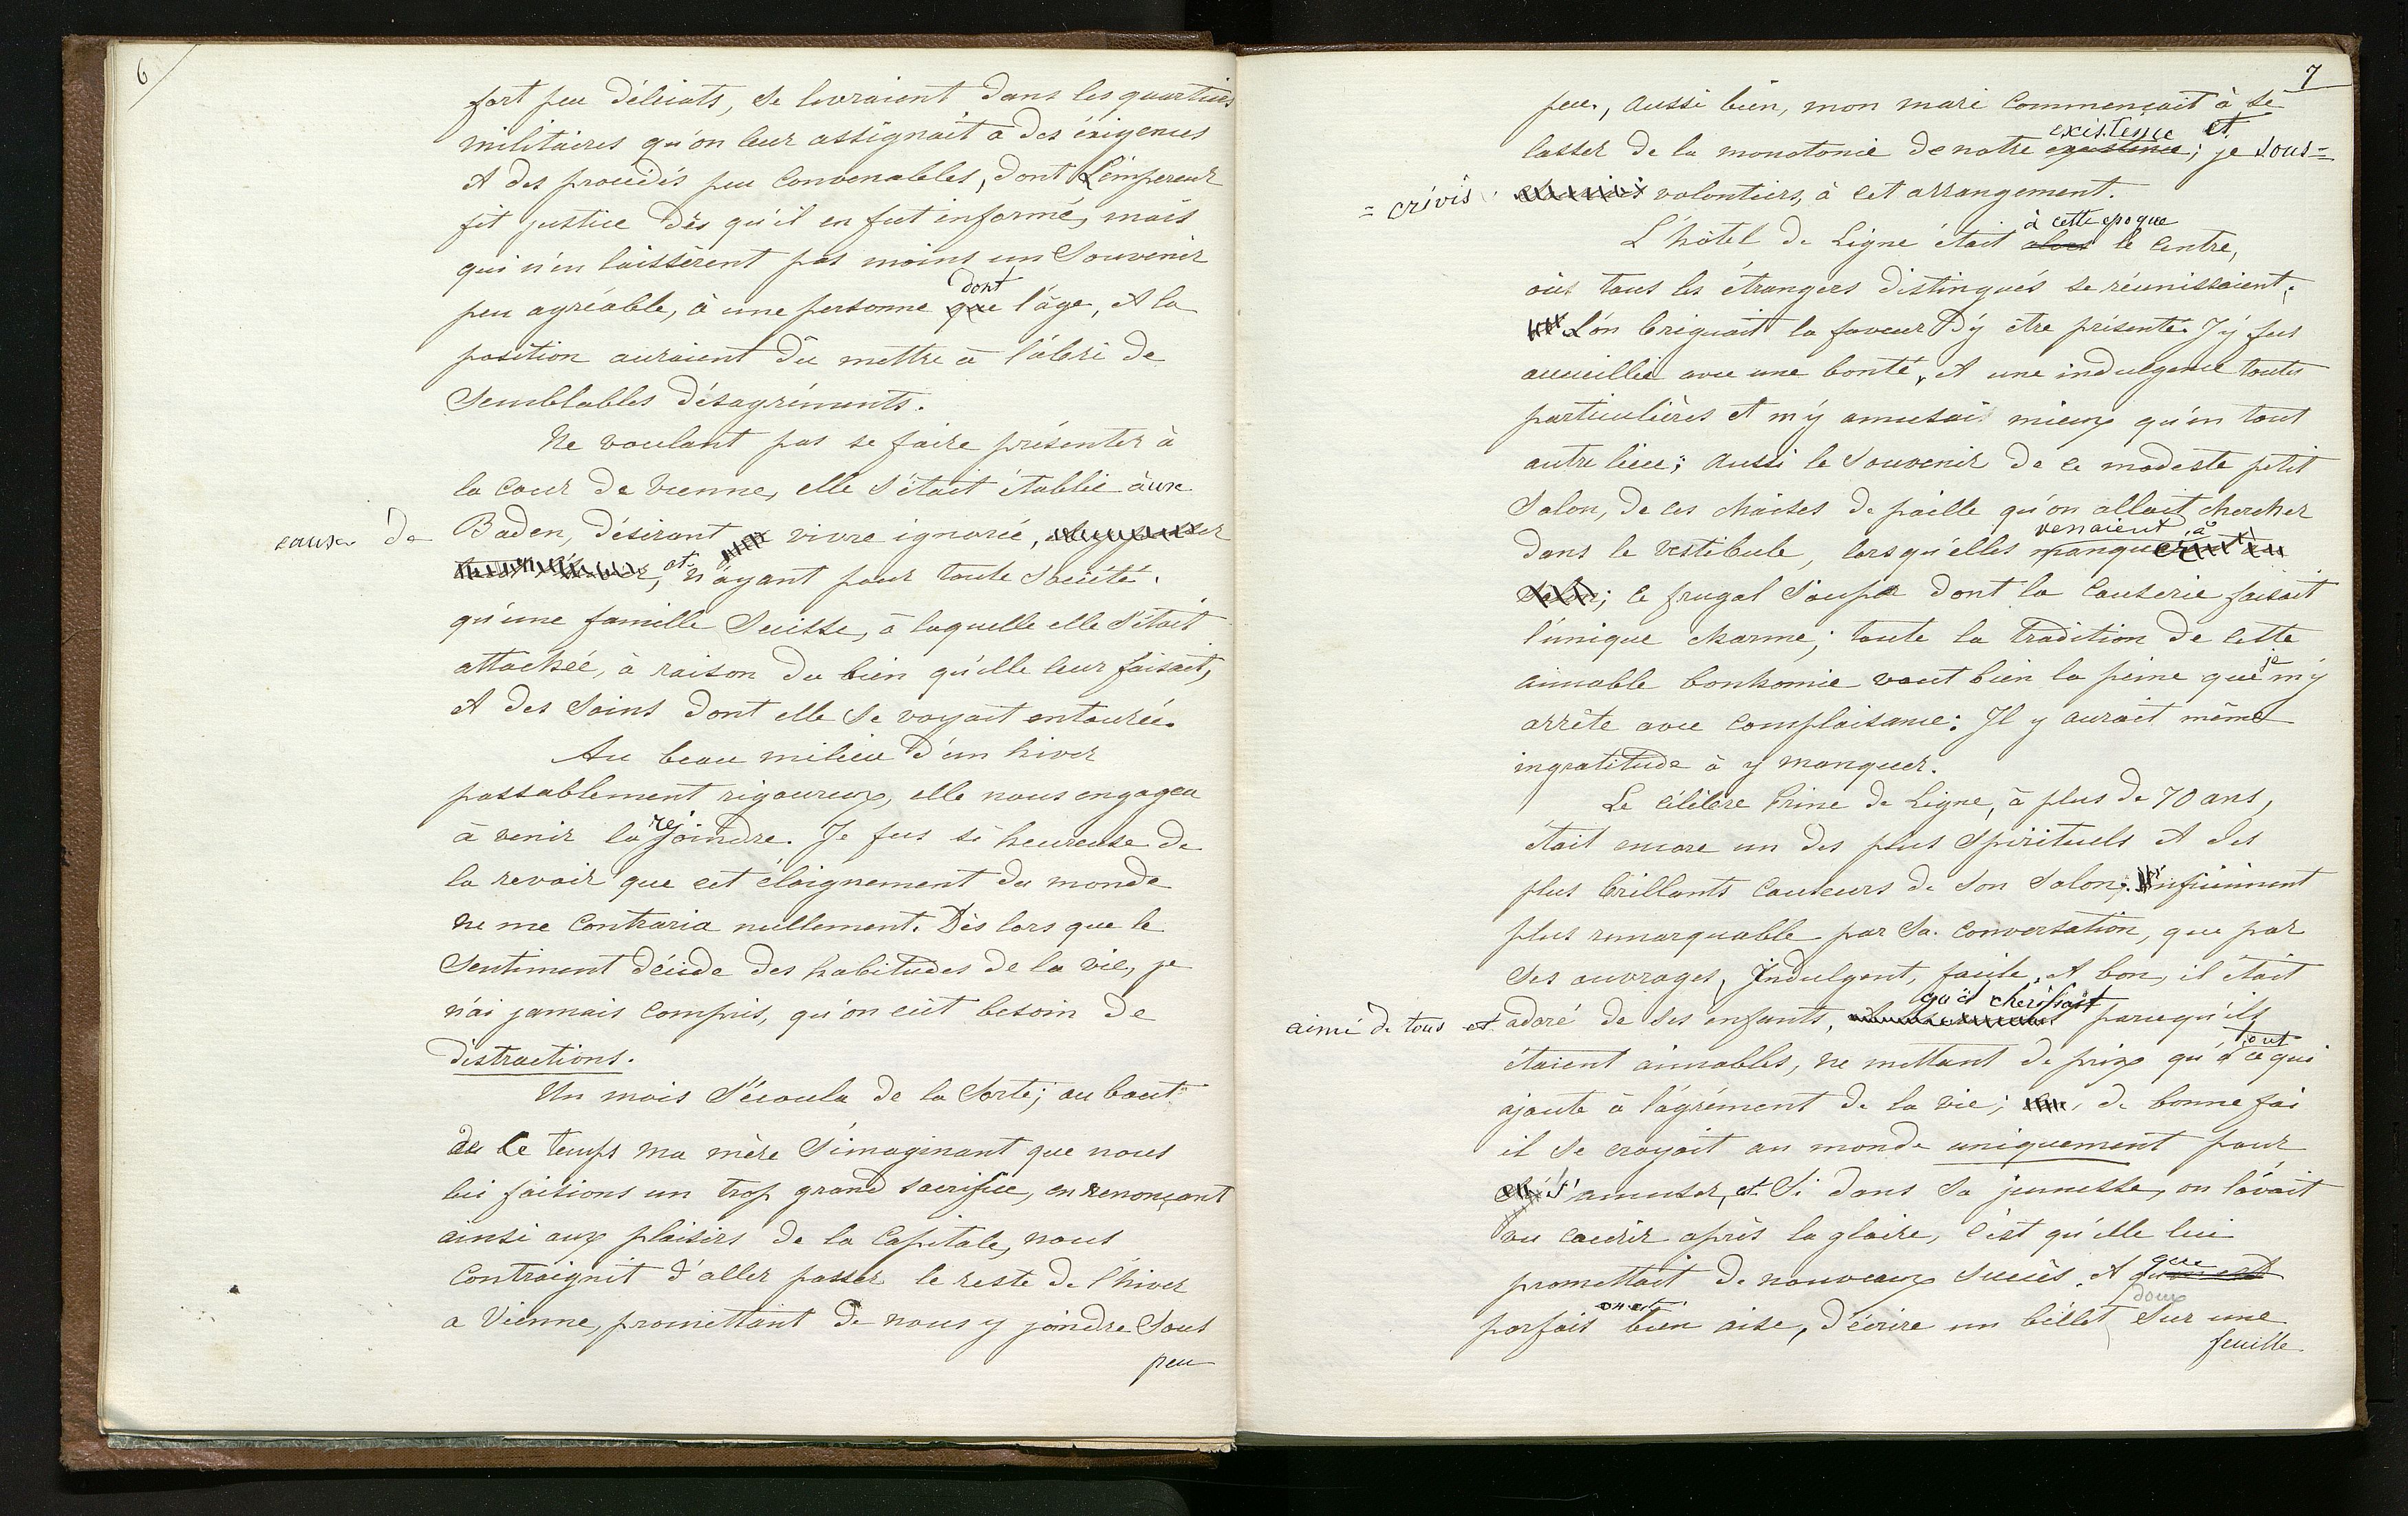 6
fort peu délicats, se livraient dans les quartiers
militaires qu'on leur assignait à des exigences
et des procédés peu convenables, dont L'empereur
fit justice dès qu'il en fut informé, mais
qui n'en laissèrent pas moins un Souvenir
dont
peu agréable, à une personne que l'âge, et la
position auraient dû mettre à l'abri de
Semblables désagréments.
Ne voulant pas se faire présenter à
la Cour de Vienne, elle s'était établie aux
eaux de Baden, désirant vivre ignorée,
et n'ayant pour toute Société
qu'une famille Suisse, à laquelle elle s'était
attachée, à raison du bien qu'elle leur faisait,
et des Soins dont elle se voyait entourée.
Au beau milieu d'un hiver
passablement rigoureux, elle nous engagea
à venir la rejoindre. Je fus si heureuse de
la revoir que cet éloignement du monde
ne me contraria nullement. Dès lors que le
Sentiment décide des habitudes de la vie, je
n'ai jamais compris, qu'on eût besoin de
distractions.
Un mois s'écoula de la Sorte; au bout
de ce temps ma mère S'imaginant que nous
lui faisions un trop grand sacrifice, en renonçant
ainsi aux plaisirs de la Capitale, nous
Contraignit d'aller passer le reste de l'hiver
a Vienne, promettant de nous y joindre Sous
peu
7
peu, aussi bien, mon mari commençait à se
existence et
lasser de la monotonie de notre existence; je sous=
=crivis volontiers, à cet arrangement.
à cette epoque
L'hôtel de Ligne était alors le centre,
où tous les étrangers distingués se réunissaient.
L'on briguait la faveur d'y être présenté. J'y fus
accueillie avec une bonté, et une indulgence toutes
particulières et m'y amusai mieux qu'en tout
autre lieu; aussi le Souvenir de ce modeste petit
Salon, de ces chaises de paille qu'on allait chercher
venaient à
dans le vestibule, lorsqu'elles manquer
Salon; ce frugal Souper dont la Causerie faisait
l'unique charme; toute la tradition de cette
je
aimable bonhomie vaut bien la peine que m'y
arrête avec complaisance: Il y aurait même
ingratitude à y manquer.
Le célèbre Prince de Ligne, à plus de 70 ans,
était encore un des plus Spirituels et des
plus brillants Causeurs de son Salon; infiniment
plus remarquable par Sa conversation, que par
Ses ouvrages, Indulgent, facile, et bon, il était
qu'il chérissait
aimé de tous et adoré de ses enfants, parcequ'ils
tout
étaient aimables, ne mettant de prix qu'à ce qui
ajoute à l'agrément de la vie; de bonne foi
il se croyait au monde uniquement pour
s'amuser, et Si dans Sa jeunesse, on l'avait
vu courir après la gloire, c'est qu'elle lui
promettait de nouveaux Succès, et que
on est doux
parfois bien aise, d'écrire un billet Sur une
feuille